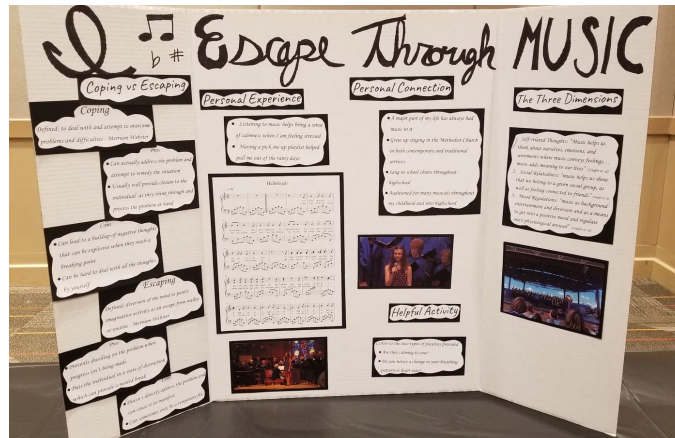 I ♭ # Escape Through MUSIC
Coping vs Escaping
Coping
Defined: to deal with and attempt to overcome
problems and difficulties - Merriam Webster
Pros
Can actually address the problem and
attempt to remedy the situation
Usually will provide closure to the
individual as they think through and
process the problem at hand
Cons
Can lead to a buildup of negative thoughts
that can be explosive when they reach a
breaking point
Can be hard to deal with all the thoughts
by yourself
Escaping
Defined: diversion of the mind to purely
imaginative activity as an escape from reality
or routine - Merriam Webster
Pros
Prevents dwelling on the problem when
progress isn't being made
Puts the individual in a state of distraction
which can provide a needed break
Cons
Doesn't directly address the problem
can cause it to manifest
Can sometimes only be a temporary fix
Personal Experience
Listening to music helps bring a sense
of calmness when I am feeling stressed
Having a pick me up playlist helped
pull me out of the rainy days
Hallelujah
Personal Connection
A major part of my life has always had
music in it
Grew up singing in the Methodist Church
in both contemporary and traditional
services
Sang in school choirs throughout
highschool
Auditioned for many musicals throughout
my childhood and into highschool
Helpful Activity
Listen to the four types of playlists provided
Are they calming to you?
Do you notice a change in your breathing
pattern or heart rate?
The Three Dimensions
Self-related Thoughts: "Music helps us
think about ourselves, emotions, and
sentiments where music conveys feelings…
music adds meaning to our lives"
2. Social Relatedness: "music helps us show
that we belong to a given social group, as
well as feeling connected to friends"
3. Mood Regulations: "music as background
entertainment and diversion and as a means
to get into a positive mood and regulate
one's physiological arousal"